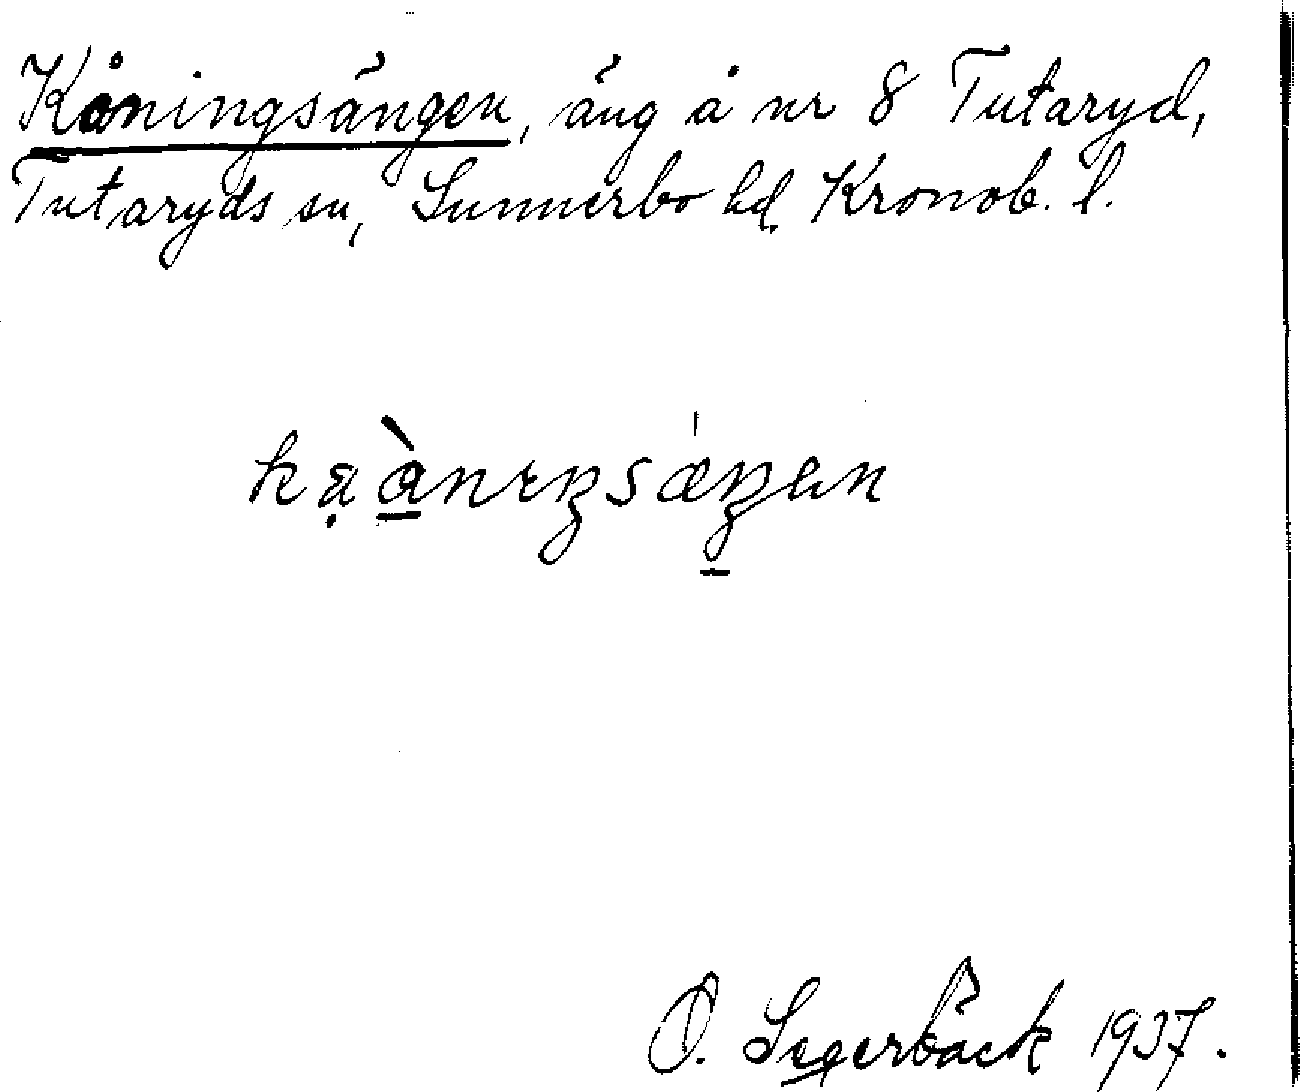 Kåningsängen, äng å nr 8 Tutaryd,
Tutaryds sn, Sunnerbo hd Kronob. l.
O. Segerbäck 1937.